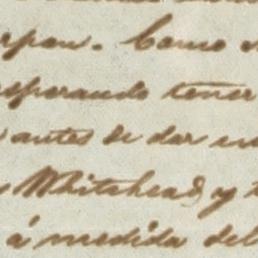 rpan. Como
esperando tener
antes de dar en
Whitehead y t
á medida del